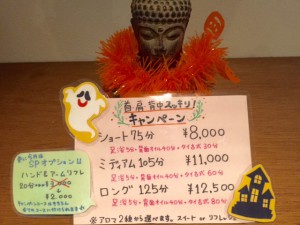 首・肩・背中スッキリ!
キャンペーン
ショート75分 ¥8,000
足浴5分+背面オイル40分+タイ古式30分
ミディアム105分 ¥11,000
足浴5分+背面オイル40分+タイ古60分
ロング125分 ¥12,500
足浴5分+背面オイル40分+タイ80分
※アロマ2種から選べます。スイート or リフレッシュ
SPオプション
ハンド&アームリフレ
20分
¥2,000